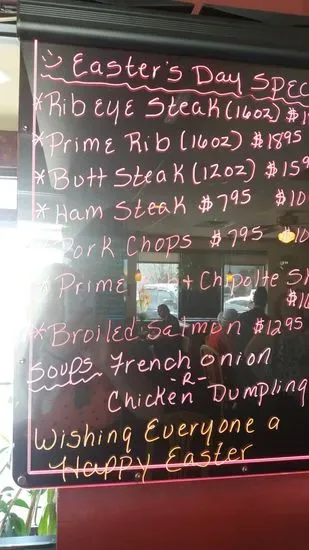 Easter's Day Spec
* Rib eye Steak (16oz) $1
* Prime Rib (16oz) $1895
* Butt Steak (12oz) $159
* Ham Steak $795 $10
* Pork Chops $795 $10
* Prime + Chipolte S
$10
* Broiled Salmon $1295
Soups French Onion
-R-
Chicken Dumpling
Wishing Everyone a
Happy Easter